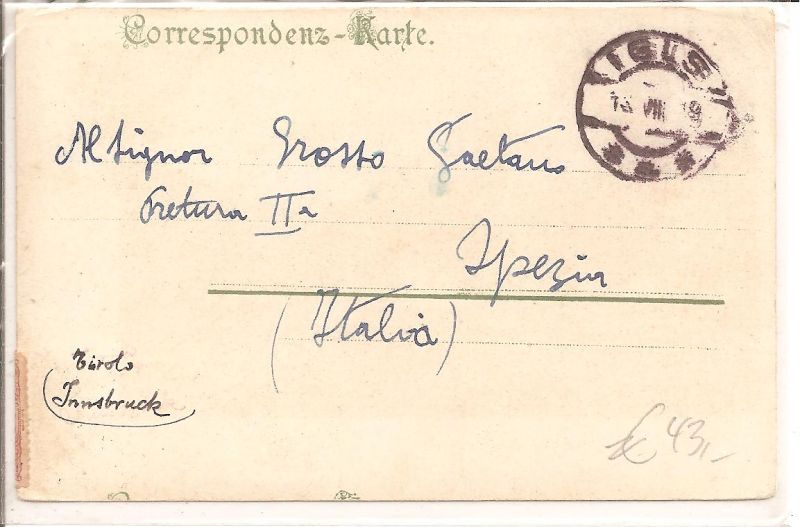 Correspondenz-Karte.
IGLS
13 VIII
Al Signor Grosso Gaetano
Pretura IIa
Spezia
(Italia)
Tirolo
(Innsbruck
€ 43,-